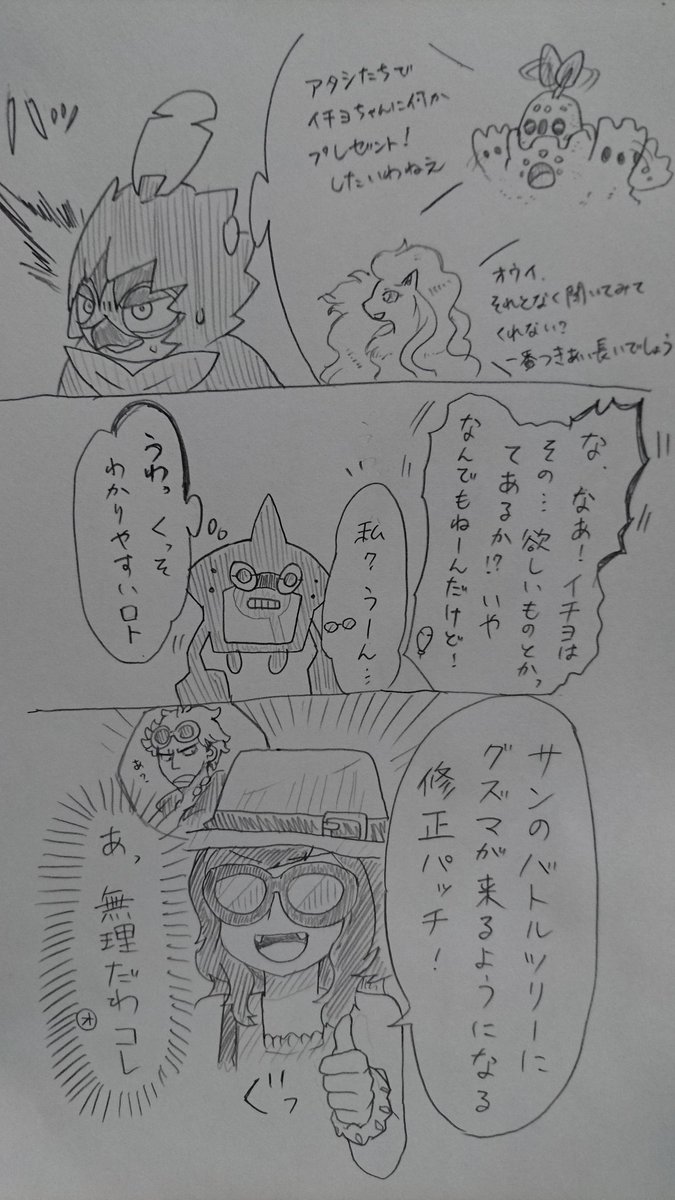 アタシたちで
イチヨちゃんに何か
プレゼント！
したいわねえ
オウイ、
それとなく聞いてみて
くれない？
一番つきあい長いでしょう
バッ
な、なあ！イチヨは
その…欲しいものとかっ
てあるか!?いや
なんでもねーんだけど！
私？うーん…
うわっくっそ
わかりやすいロト
サンのバトルツリーに
グズマが来るようになる
修正パッチ！
あ？
ぐっ
あっ無理だわコレ